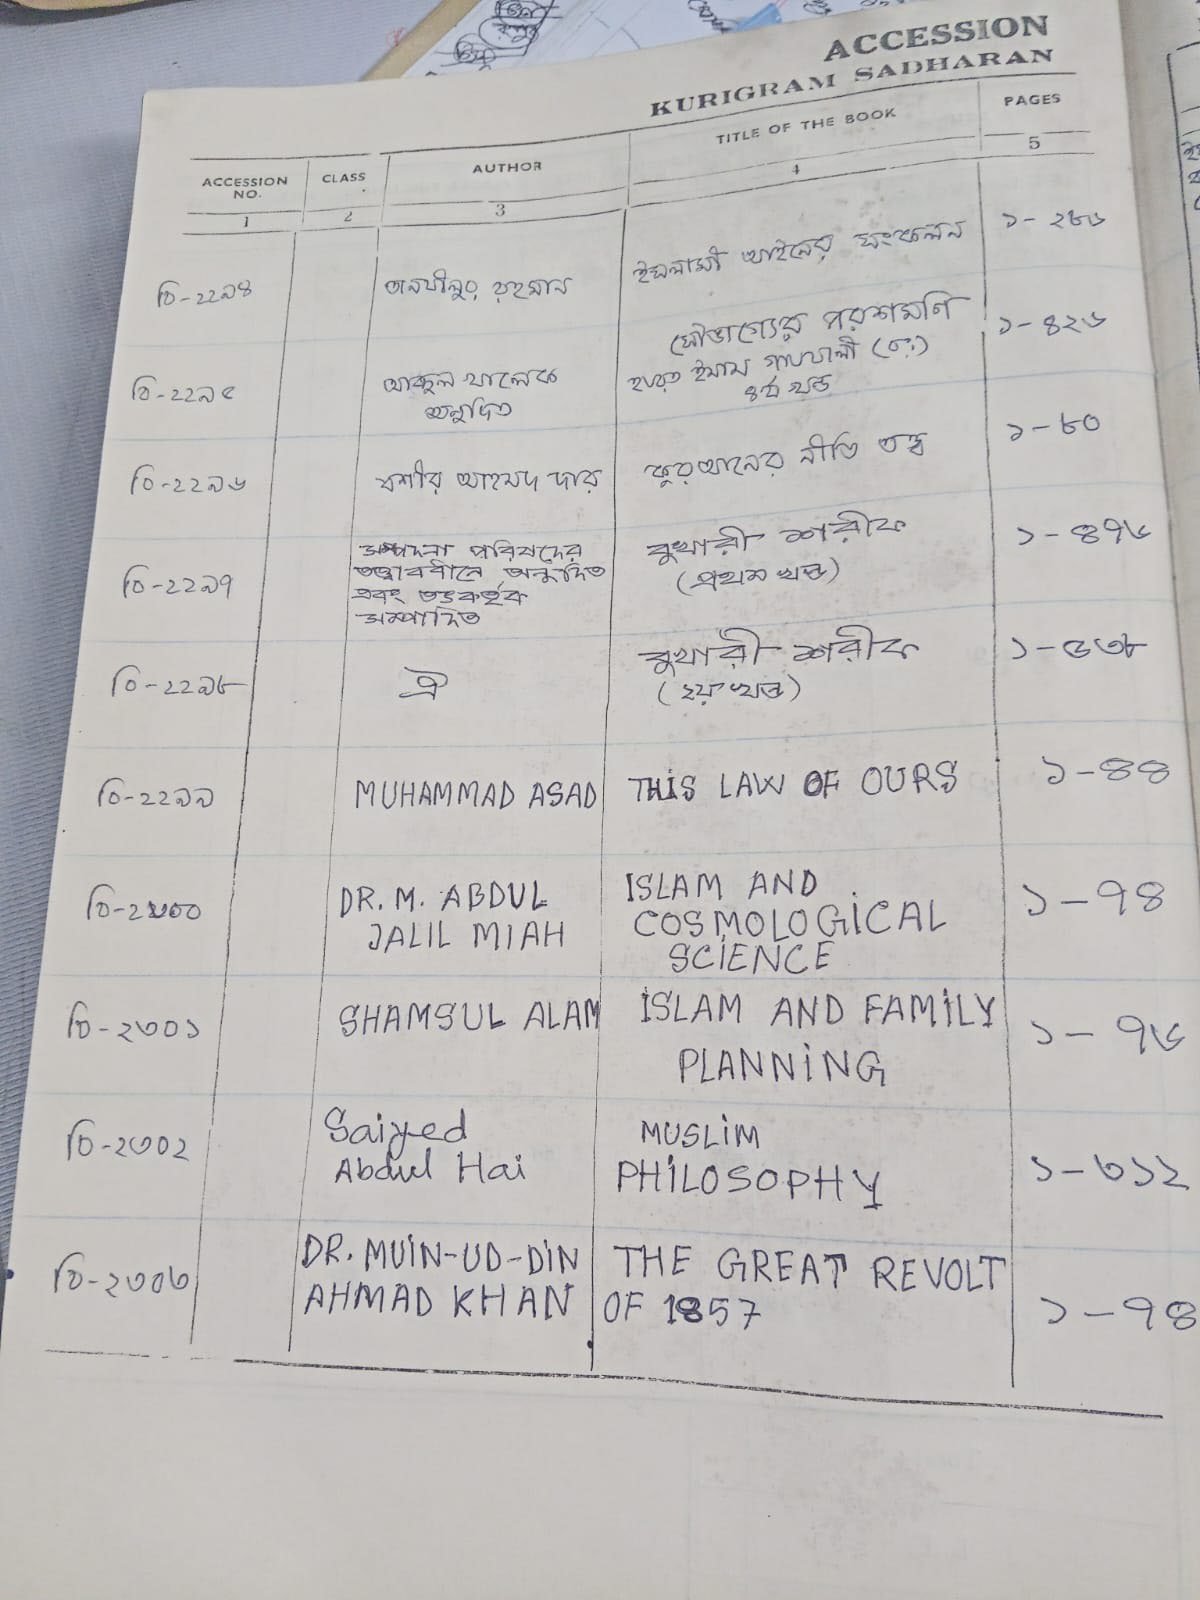 ACCESSION
KURIGRAM SADHARAN
ACCESSION NO. CLASS AUTHOR TITLE OF THE BOOK PAGES
1 2 3 4 5
ডি-২২৯৪ রহমান ইসলামী আইনের সংকলন ১-২৮৬
ডি-২২৯৫ আব্দুল খালেক সৌভাগ্যের পরশমণি ১-৪২৬
অনুদিত হযরত ইমাম গাযযালী (রঃ)
৪র্থ খন্ড
ডি-২২৯৬ বশীর আহমদ দার কুরআনের নীতি তত্ত্ব ১-৮০
ডি-২২৯৭ সম্পদনা পরিষদের বুখারী শরীফ ১-৪৭৬
তত্ত্বাবধানে অনুদিত (প্রথম খন্ড)
এবং তৎকর্তৃক
সম্পাদিত
ডি-২২৯৮ ঐ বুখারী শরীফ ১-৫৩৮
(২য় খন্ড)
ডি-২২৯৯ MUHAMMAD ASAD THIS LAW OF OURS ১-৪৪
ডি-২৩০০ DR. M. ABDUL ISLAM AND ১-৭৪
JALIL MIAH COSMOLOGICAL
SCIENCE
ডি-২৩০১ SHAMSUL ALAM ISLAM AND FAMILY ১-৭৬
PLANNING
ডি-২৩০২ Saiyed MUSLIM ১-৩১২
Abdul Hai PHILOSOPHY
ডি-২৩০৩ DR. MUIN-UD-DIN THE GREAT REVOLT ১-৭৪
AHMAD KHAN OF 1857